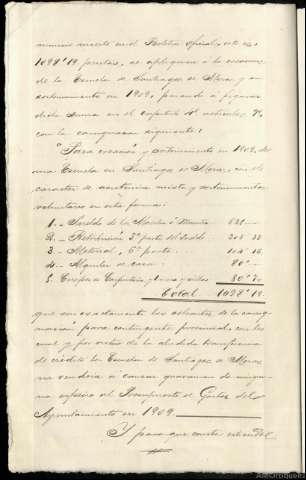 nuncio inserto en el Boletin oficial,
1098'19 pesetas, se apliquen á la creacion
de la Escuela de Santiago de Mora y su
sostenimiento en 1909, pasando á figurar
dicha suma en el capitulo 4º articulo 7º
con la consignacion siguiente:
"Para creacion y sostenimiento en 1909, de
una Escuela en Santiago de Mora, con el
caracter de asistencia mixta y sostenimiento
voluntario en esta forma:
1. Sueldo de la Maestra ó Maestro
2. Retribucion 3ª parte del sueldo
3. Material, 6ª parte 104 16
4. Alquiler de casa 80
5. 80 70
Total 1098 19
que son exactamente los sobrantes de la consig-
nacion para contingente provincial, con los
cual y por virtud de la aludida transferencia
de crédito la Escuela de Santiago de Mora
no vendria á causar gravamen de ningu-
na especie al Presupuesto de Gastos del
Ayuntamiento en 1909.
Y para que conste